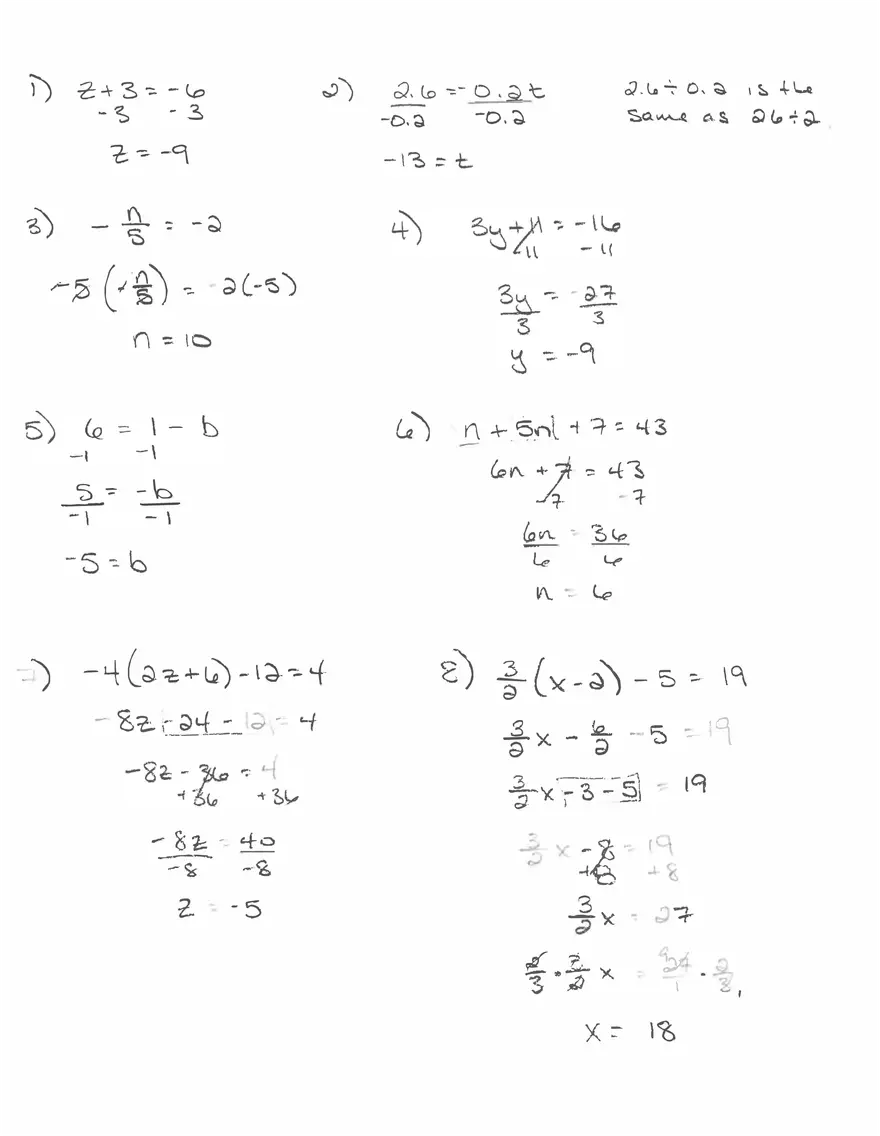 1) z + 3 = -6
-3 -3
z = -9
2) 2.6 = -0.2t
-0.2 -0.2
-13 = t
2.6 ÷ 0.2 is the
same as 26 ÷ 2
3) - n/5 = -2
-5 (- n/5) = -2(-5)
n = 10
4) 3y + 11 = -16
-11 -11
3y = -27
3 3
y = -9
5) 6 = 1 - b
-1 -1
5 = -b
-1 -1
-5 = b
6) n + 5n + 7 = 43
6n + 7 = 43
-7 -7
6n = 36
6 6
n = 6
7) -4(2z+6) - 12 = 4
-8z - 24 - 12 = 4
-8z - 36 = 4
+36 +36
-8z = 40
-8 -8
z = -5
8) 3/2 (x - 2) - 5 = 19
3/2 x - 6/2 - 5 = 19
3/2 x - 3 - 5 = 19
3/2 x - 8 = 19
+8 +8
3/2 x = 27
2/3 · 3/2 x = 27/1 · 2/3
x = 18